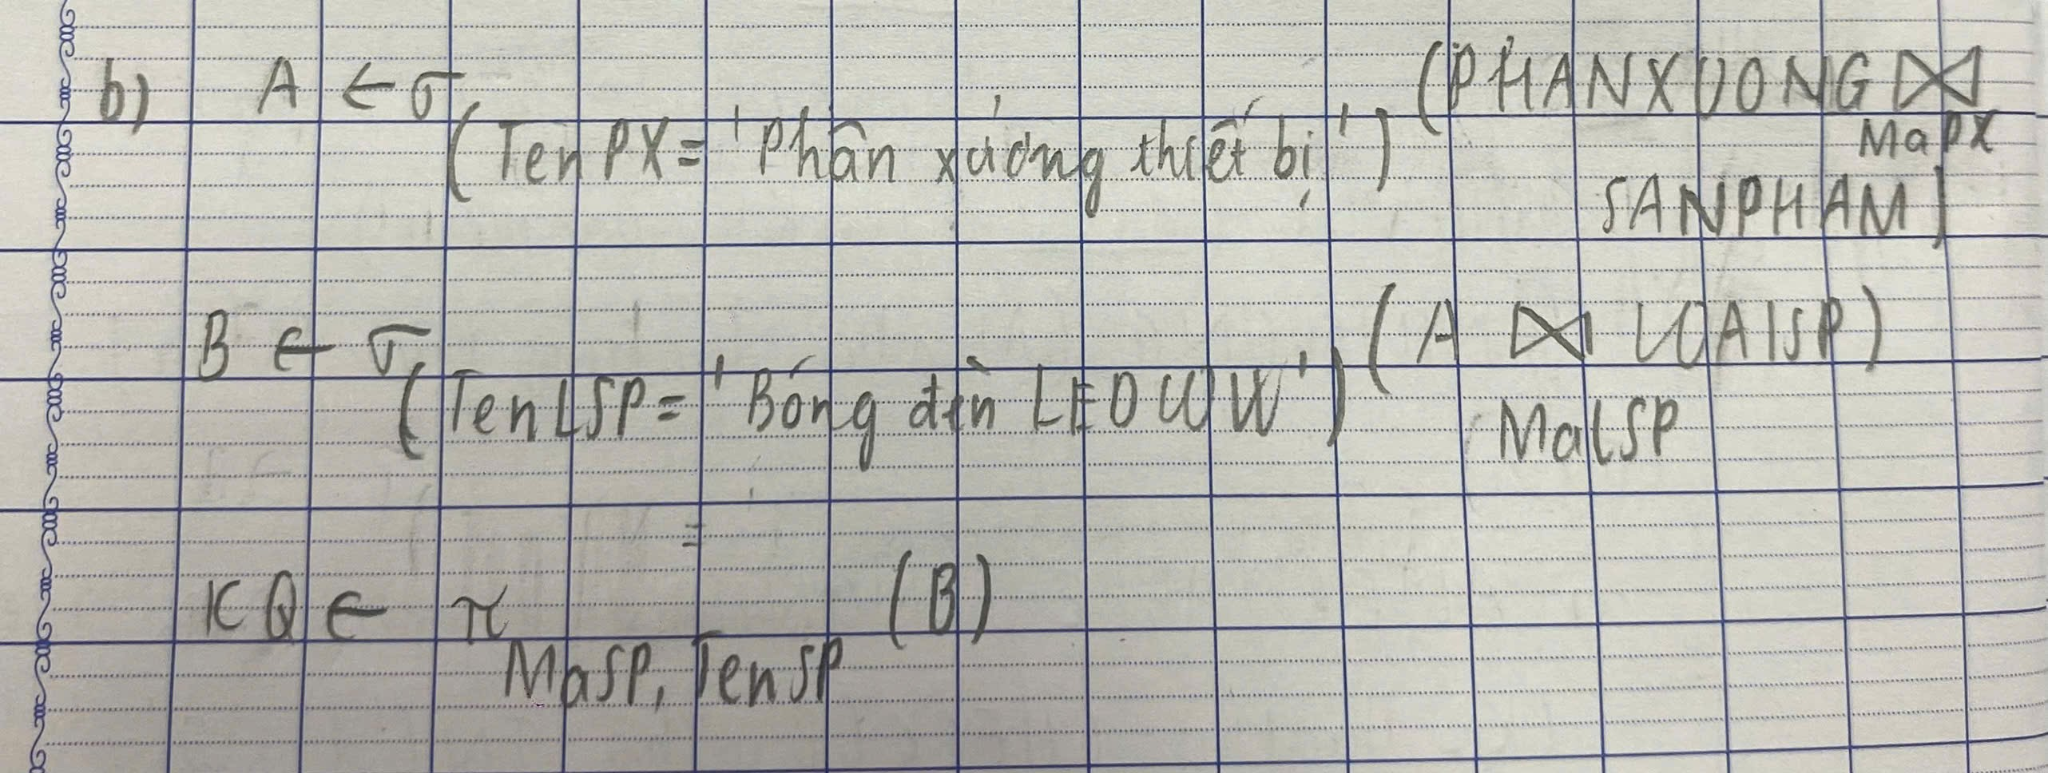 b) A ← σ (TenPX = 'Phân xưởng thiết bị') (PHANXUONG ⋈ MaPX
SANPHAM)
B ← σ (TenLSP = 'Bóng đèn LED UW') (A ⋈ LOAISP)
MaLSP
KQ ← π (B)
MaSP, TenSP